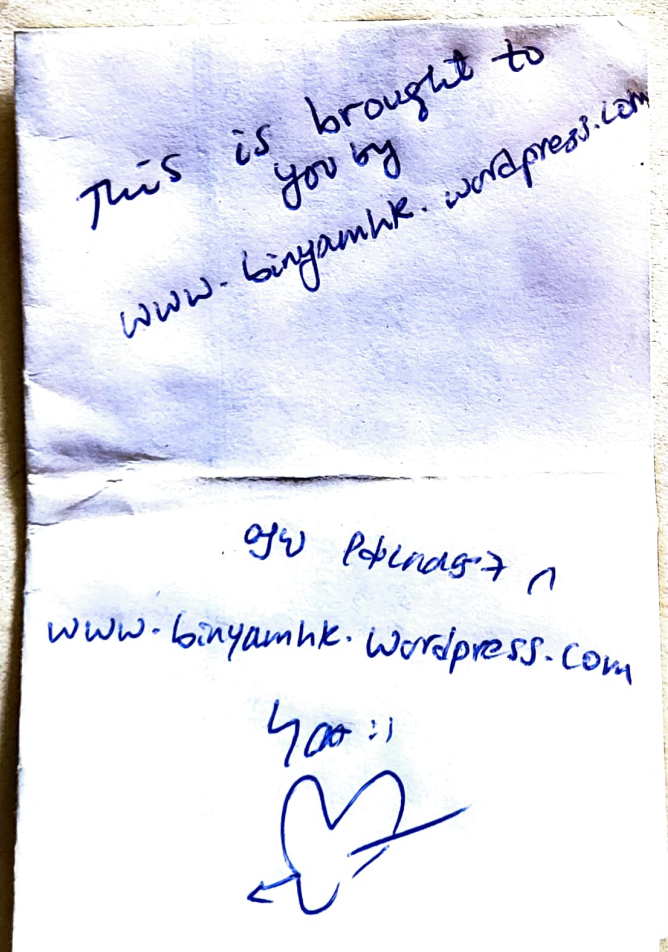 This is brought to
you by
www.binyamhk.wordpress.com
በ
www.binyamhk.wordpress.com
ነው ::